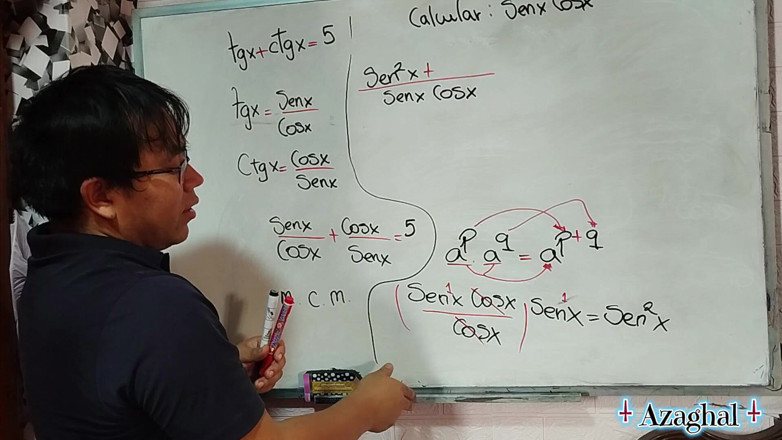 Calcular: Senx Cosx
tgx+ctgx=5
tgx=Senx/Cosx
Ctgx=Cosx/Senx
Senx/Cosx+Cosx/Senx=5
m.c.m.
Sen²x+/Senx Cosx
aᵖ.a^q=a^p+q
(Sen¹x Cosx/Cosx)Sen¹x=Sen²x
Azaghal